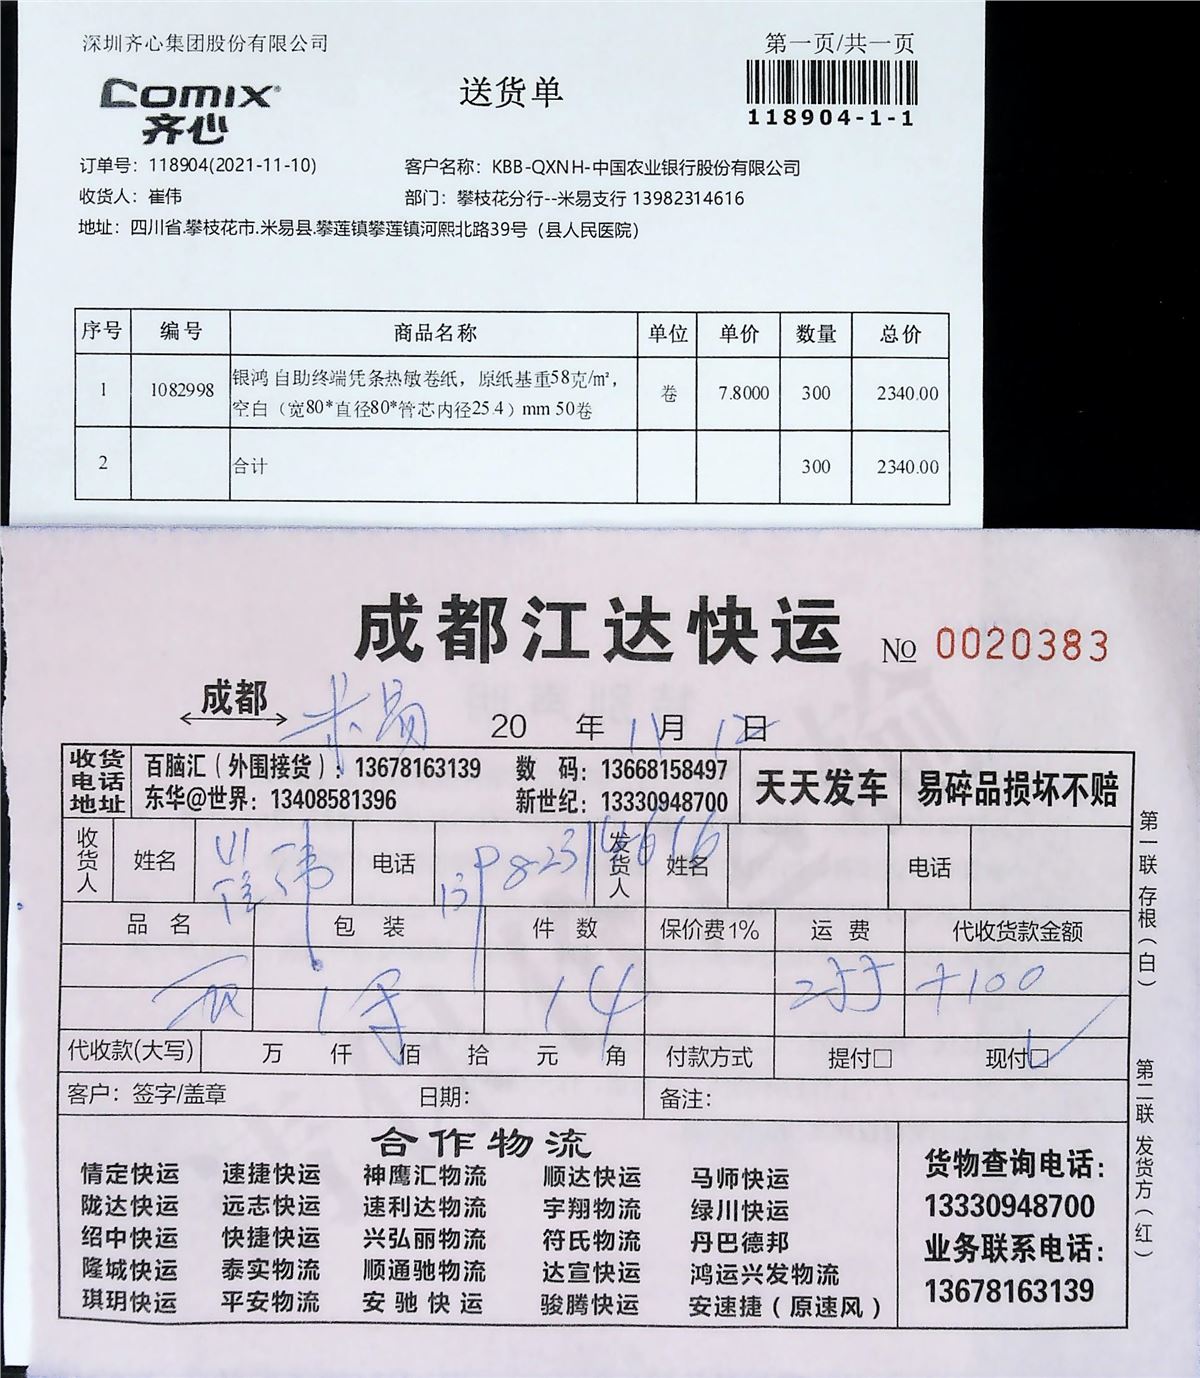 深圳齐心集团股份有限公司
第一页/共一页
Comix
齐心
送货单
118904-1-1
订单号：118904(2021-11-10)
客户名称：KBB-QXNH-中国农业银行股份有限公司
收货人：崔伟
部门：攀枝花分行--米易支行 13982314616
地址：四川省.攀枝花市.米易县.攀莲镇攀莲镇河熙北路39号（县人民医院）
序号 编号 商品名称 单位 单价 数量 总价
1 1082998 银鸿 自助终端凭条热敏卷纸，原纸基重58克/㎡， 卷 7.8000 300 2340.00
空白（宽80*直径80*管芯内径25.4）mm 50卷
2 合计 300 2340.00
成都江达快运
No 0020383
成都 米易
20 年 11月 12日
收货电话地址
百脑汇（外围接货）：13678163139 数 码：13668158497
东华@世界：13408581396 新世纪：13330948700
天天发车 易碎品损坏不赔
收货人 姓名 崔伟 电话 13982314616 发货人 姓名 电话
品 名 包 装 件 数 保价费1% 运 费 代收货款金额
14 +100
代收款(大写) 万 仟 佰 拾 元 角 付款方式 提付□ 现付□
客户：签字/盖章 日期： 备注：
合作物流
情定快运 速捷快运 神鹰汇物流 顺达快运 马师快运
陇达快运 远志快运 速利达物流 宇翔物流 绿川快运
绍中快运 快捷快运 兴弘丽物流 符氏物流 丹巴德邦
隆城快运 泰实物流 顺通驰物流 达宣快运 鸿运兴发物流
琪玥快运 平安物流 安驰快运 骏腾快运 安速捷（原速风）
货物查询电话：
13330948700
业务联系电话：
13678163139
第一联 存根（白）
第二联 发货方（红）